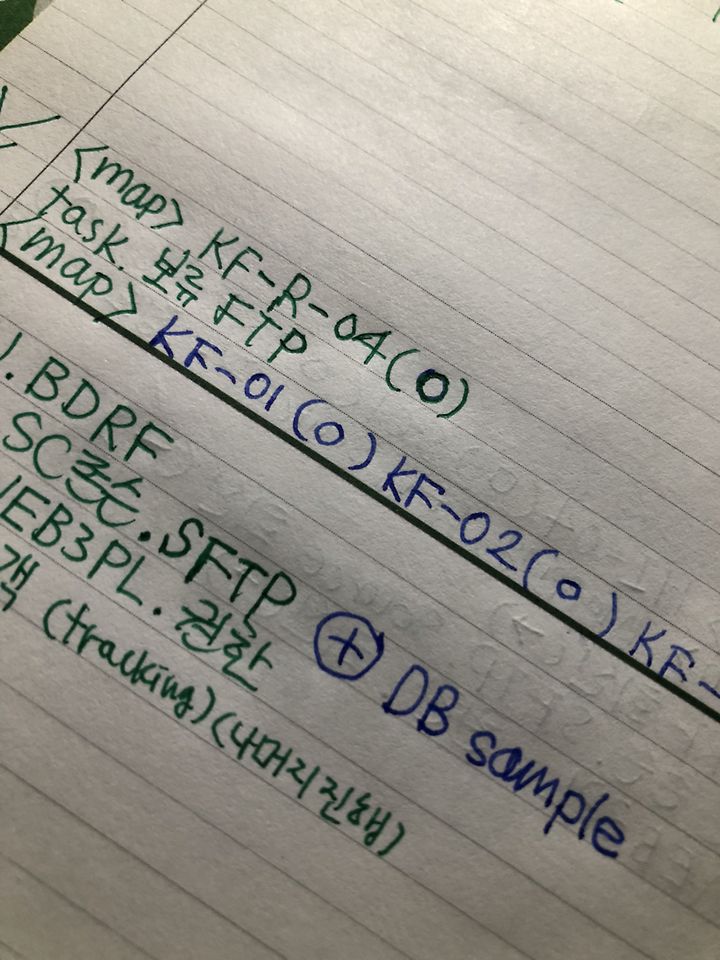 <map> KF-R-04(O)
task. 보류 FTP
<map> KF-01(O) KF-02(O) KF-
1. BDRF
SC로슈. SFTP ⊕ DB sample
WEB3PL. 권한
객 (tracking)(나머지진행)